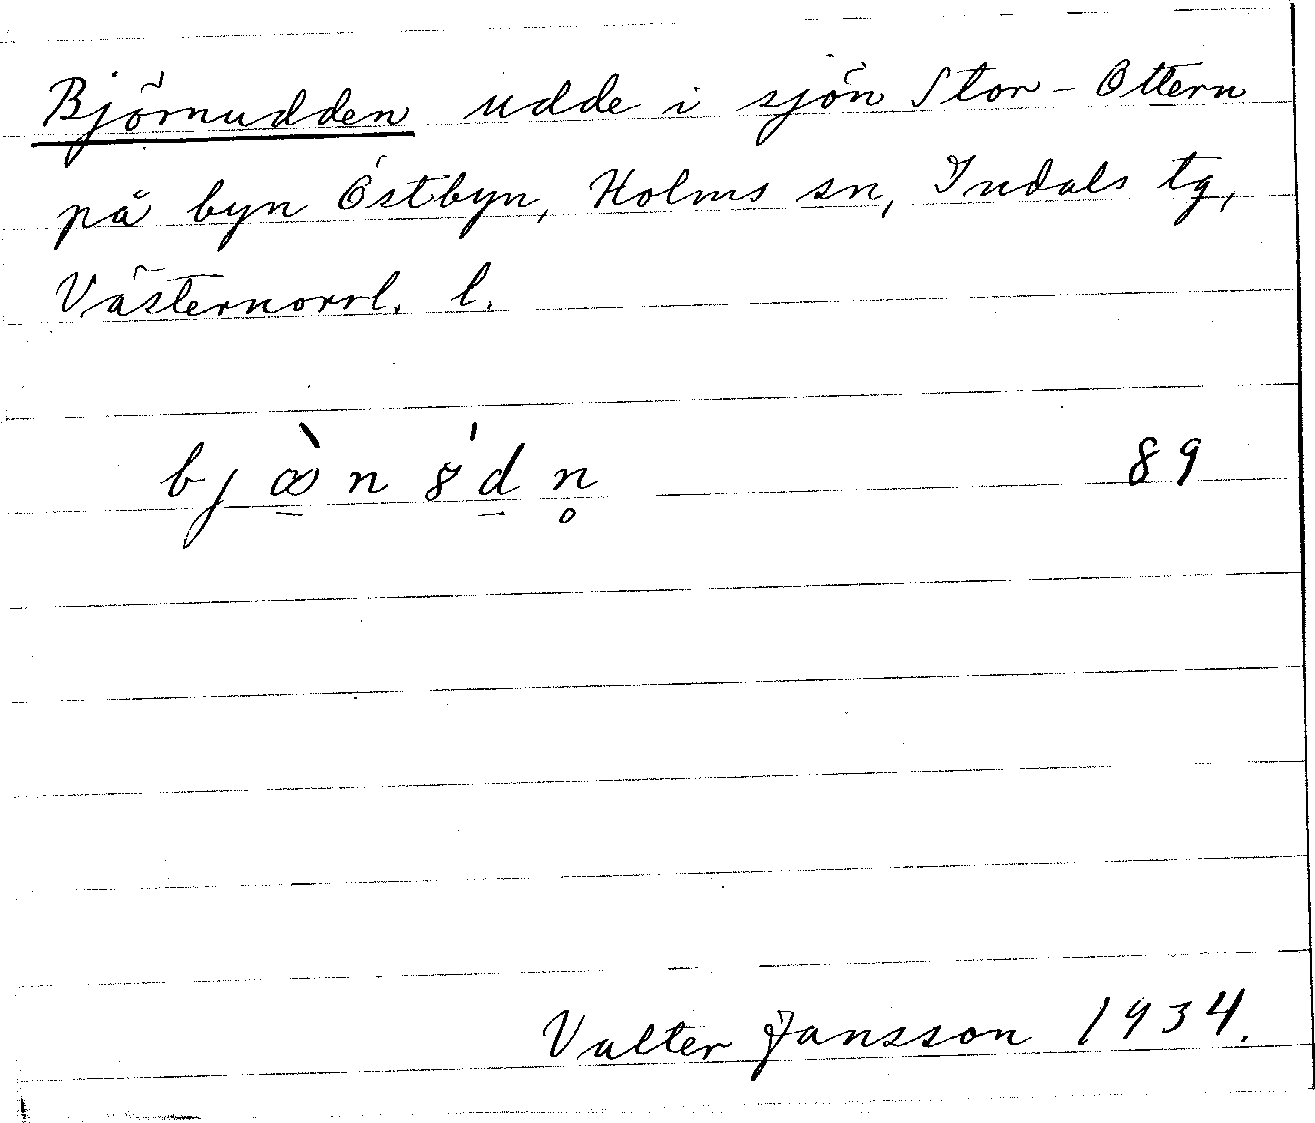 Björnudden udde i sjön Stor-Ottern
på byn Östbyn, Holms sn, Indals tg,
Västernorrl. l.
89
Valter Jansson 1934.